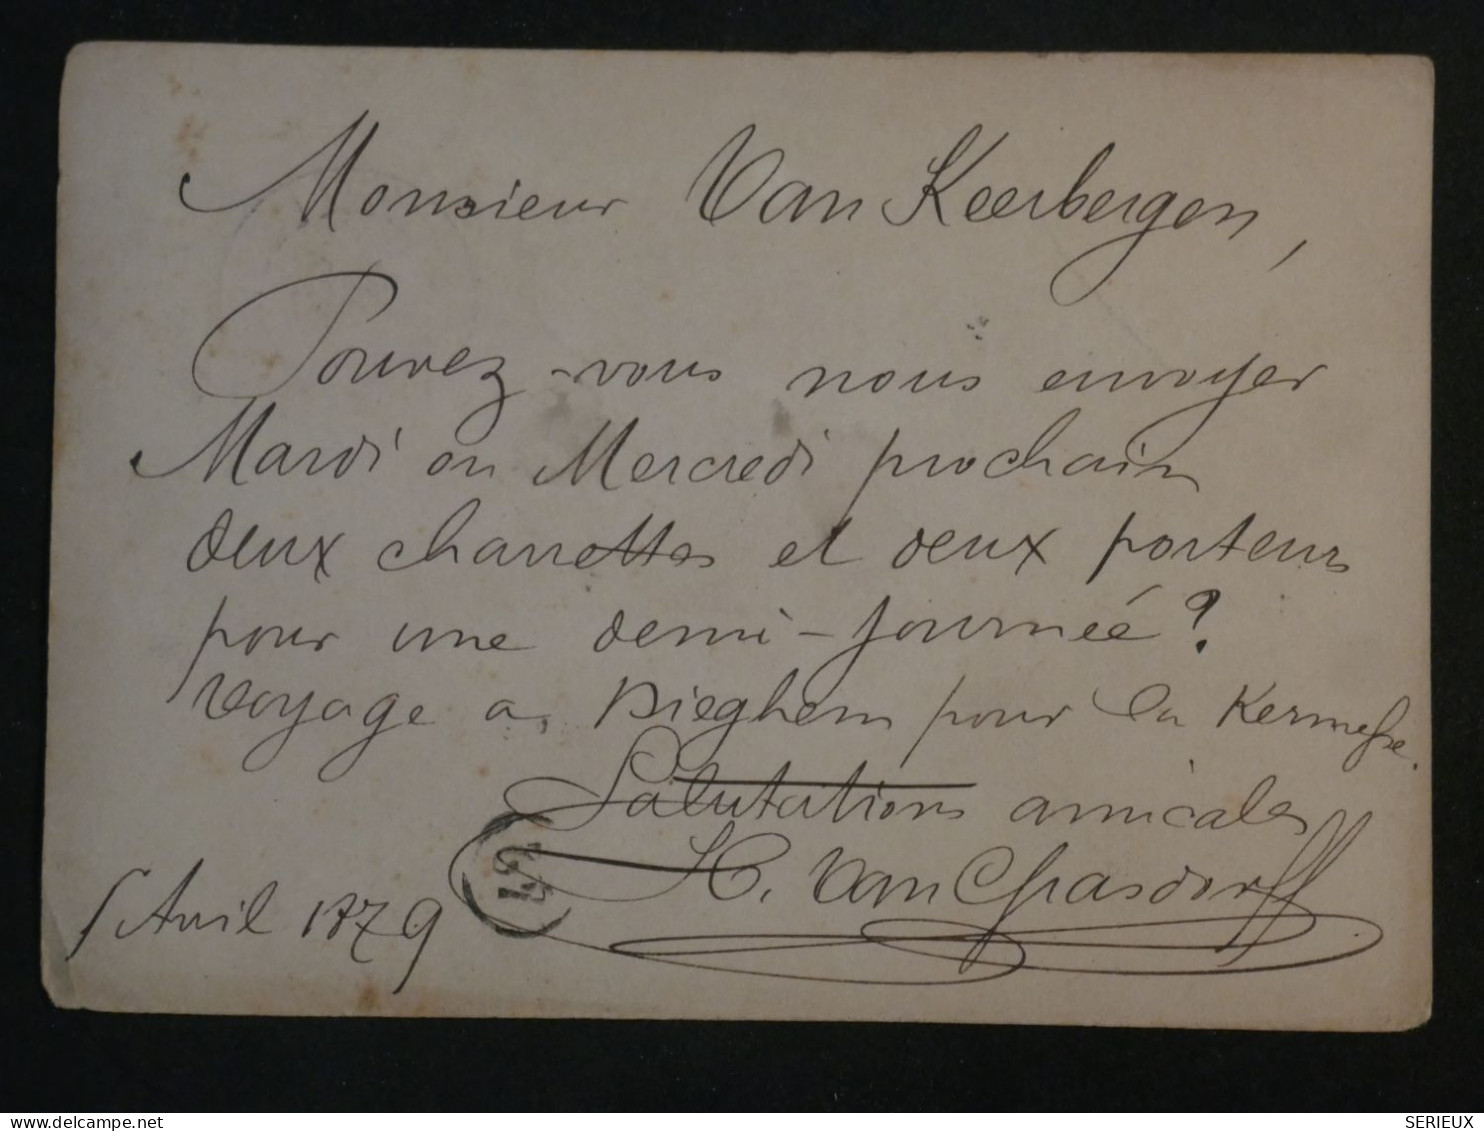 Monsieur Van Keerbergen,
Pouvez-vous nous envoyer
Mardi ou Mercredi prochain
deux charrettes et deux porteurs
pour une demi-journée?
voyage a Dieghem pour la Kermesse.
Salutations amicales
H. Van
5 Avril 1879
SERIEUX